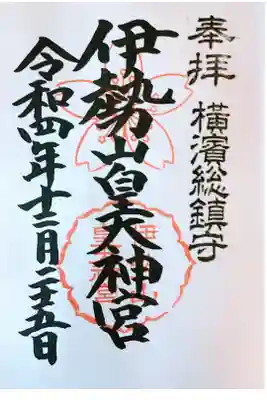 奉拝 横濱総鎮守
伊勢山皇大神宮
令和四年十二月二十五日